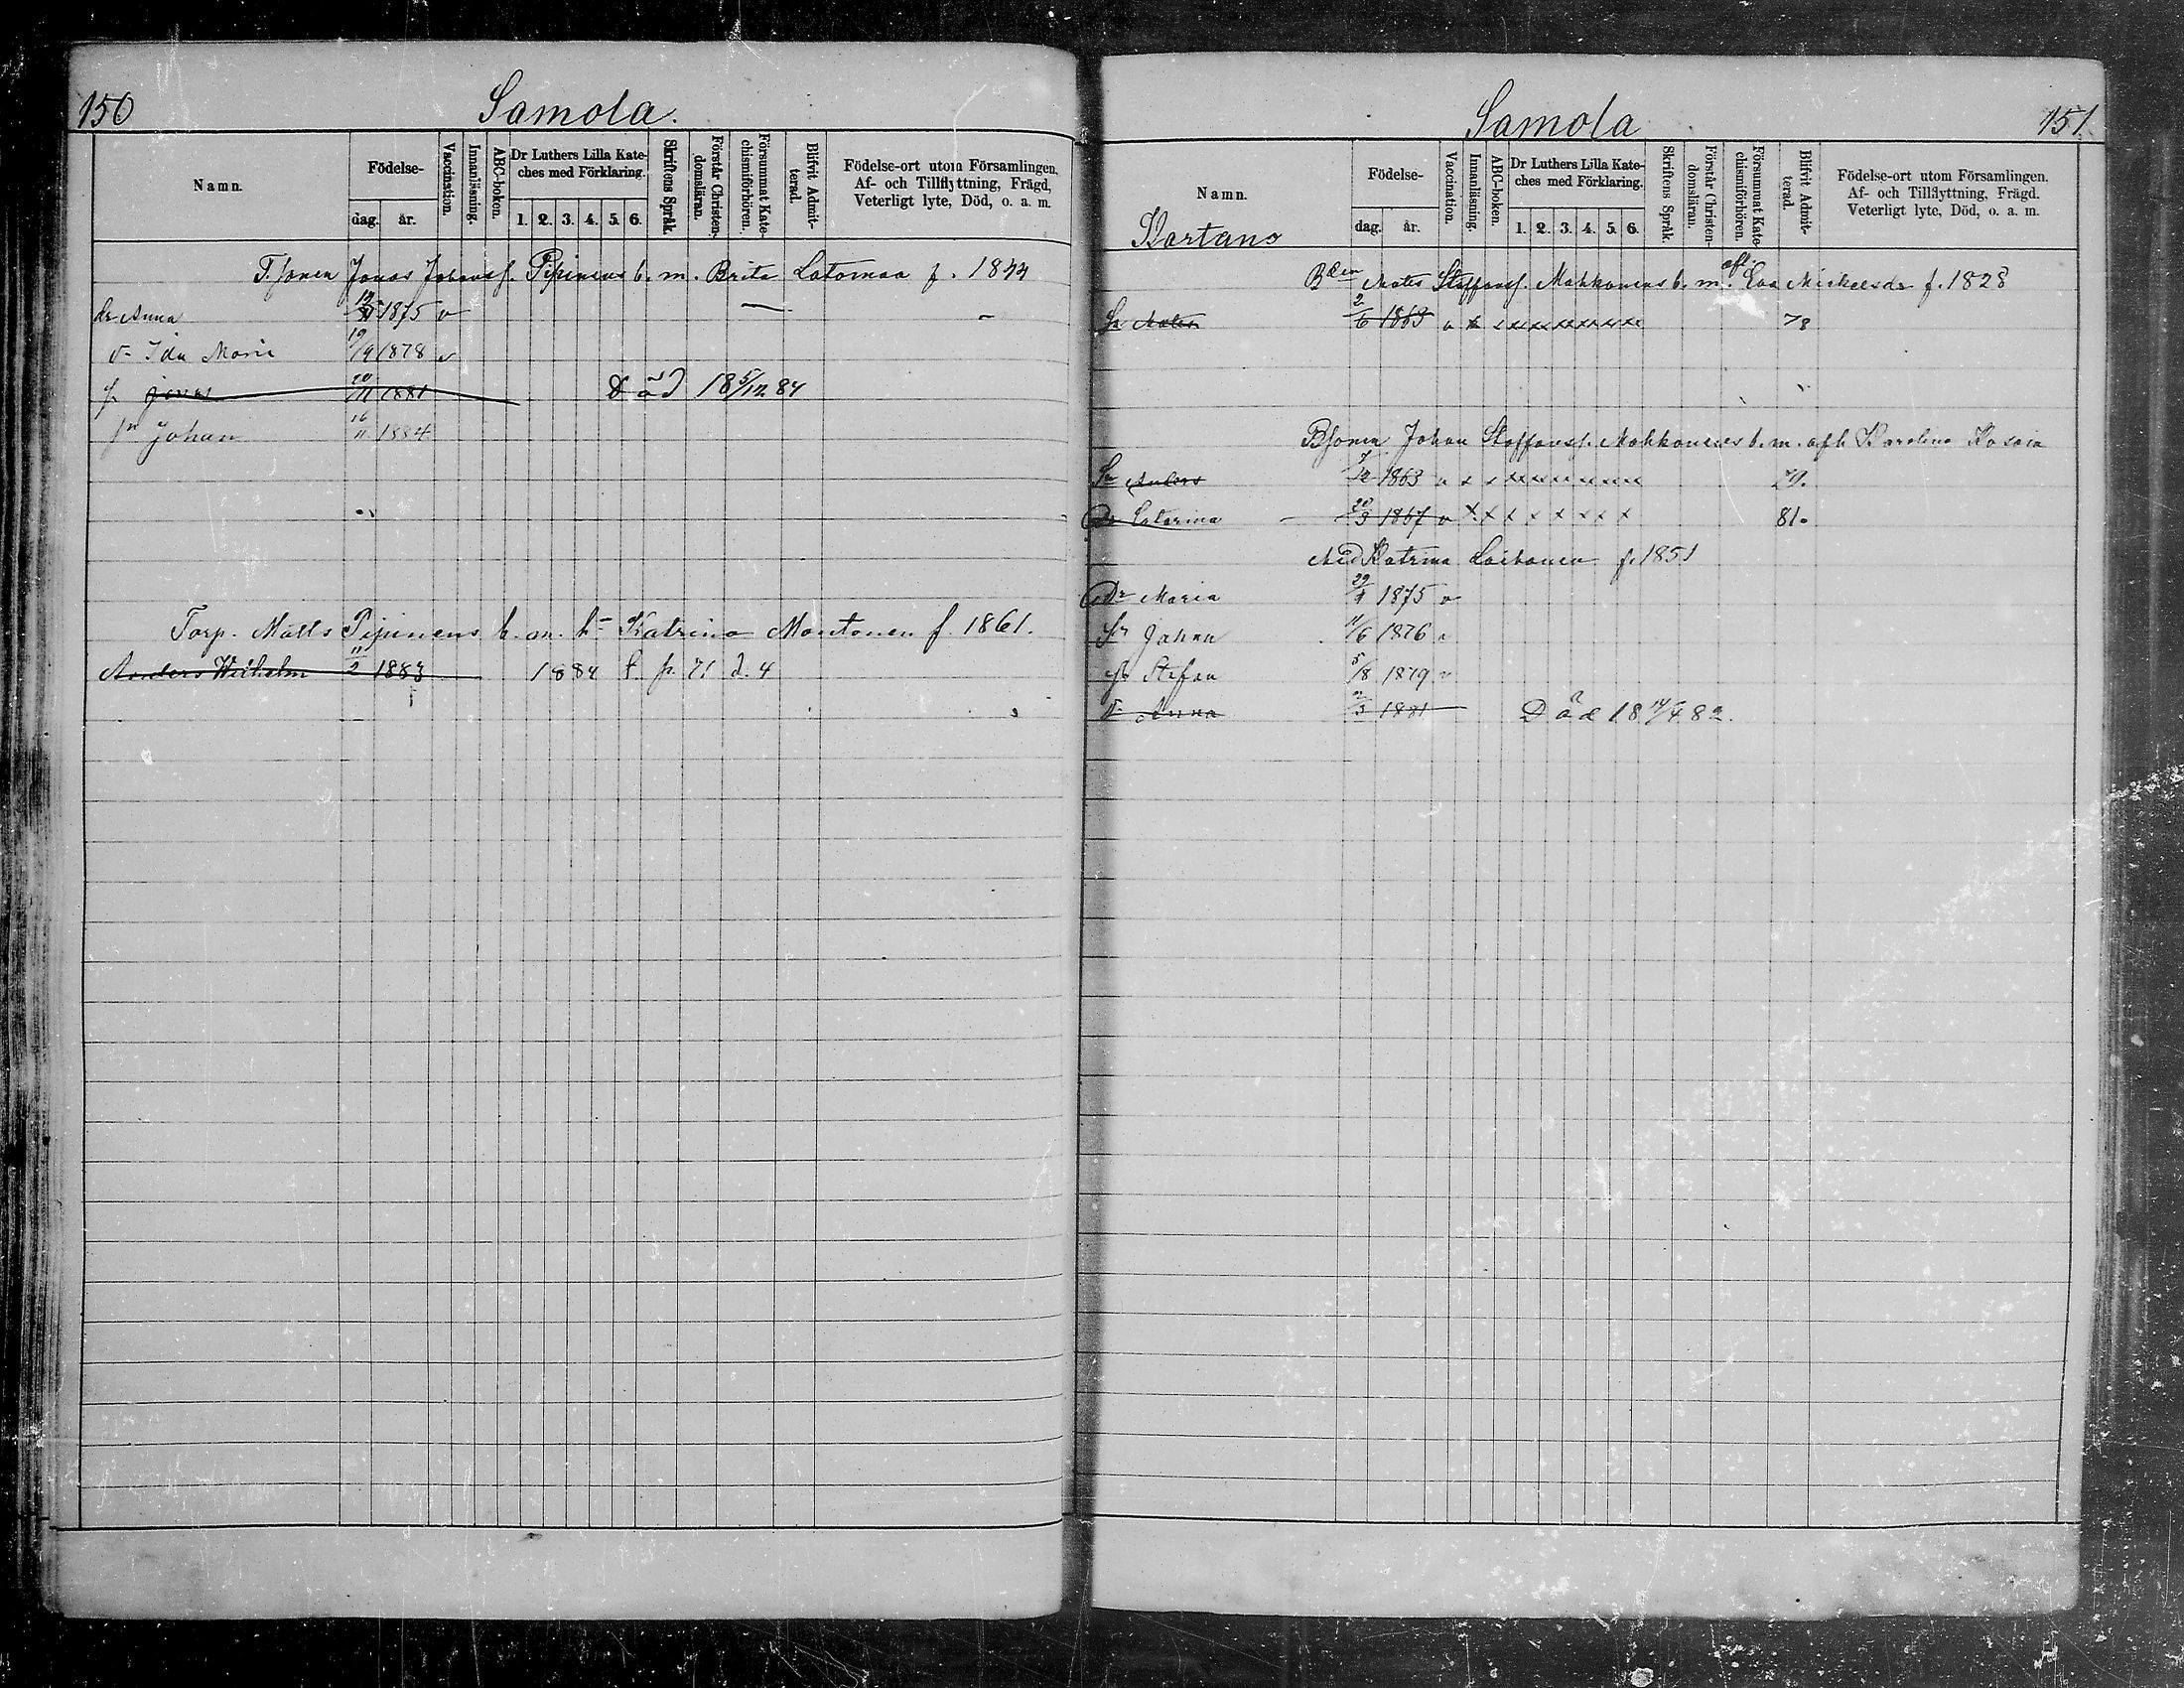 150
Samola.
Namn.
Födelse-
dag. år.
Vaccination.
Innanläsning.
ABC-boken.
Dr Luthers Lilla Kate-
ches med Förklaring.
1. 2. 3. 4. 5. 6.
Skriftens Språk.
Förstår Christen-
domsläran.
Försummat Kate-
chismiförhören.
Blifvit Admit-
terad.
Födelse-ort utom Församlingen,
Af- och Tillflyttning, Frägd,
Veterligt lyte, Död, o. a. m.
T. sonen Jonas Johanss. Pipinens b. m. Brita Latomaa f. 1844
dr Anna 1875 v
d- Ida Maria 19/9 1878 v
s. Jonas 20/11 1881 Död 18 5/12 84
sn Johan 16/11 1884
Torp. Matts Pipinens b. m. h- Katrina Mantonen f. 1861.
Anders Wilhelm 11/2 1883 1884 f. p. 71 d. 4
Samola
151
Namn.
Födelse-
dag. år.
Vaccination.
Innanläsning.
ABC-boken.
Dr Luthers Lilla Kate-
ches med Förklaring.
1. 2. 3. 4. 5. 6.
Skriftens Språk.
Förstår Christen-
domsläran.
Försummat Kate-
chismiförhören.
Blifvit Admit-
terad.
Födelse-ort utom Församlingen.
Af- och Tillflyttning, Frägd.
Veterligt lyte, Död, o. a. m.
Kartano
Bden Mats Staffanss. Mahkonens b. m. afl. Eva Mickelsdr f. 1828
Sn Mats 2/6 1863 v x x xx xx xx xx xx xx 78
Bsonen Johan Staffanss. Mahkonens b. m. afl. Karolina
Sn Anders 7/12 1863 v x x xx xx xx xx xx xx 79.
Dr Catarina 20/3 1867 v x x x x x x x x 81.
Med Katrina Laihonen f. 1851
Dr Maria 1875 v
Sn Johan 11/6 1876 v
Sn Stefan 5/8 1879 v
d- Anna 2/3 1881 Död 18 14/4 82.